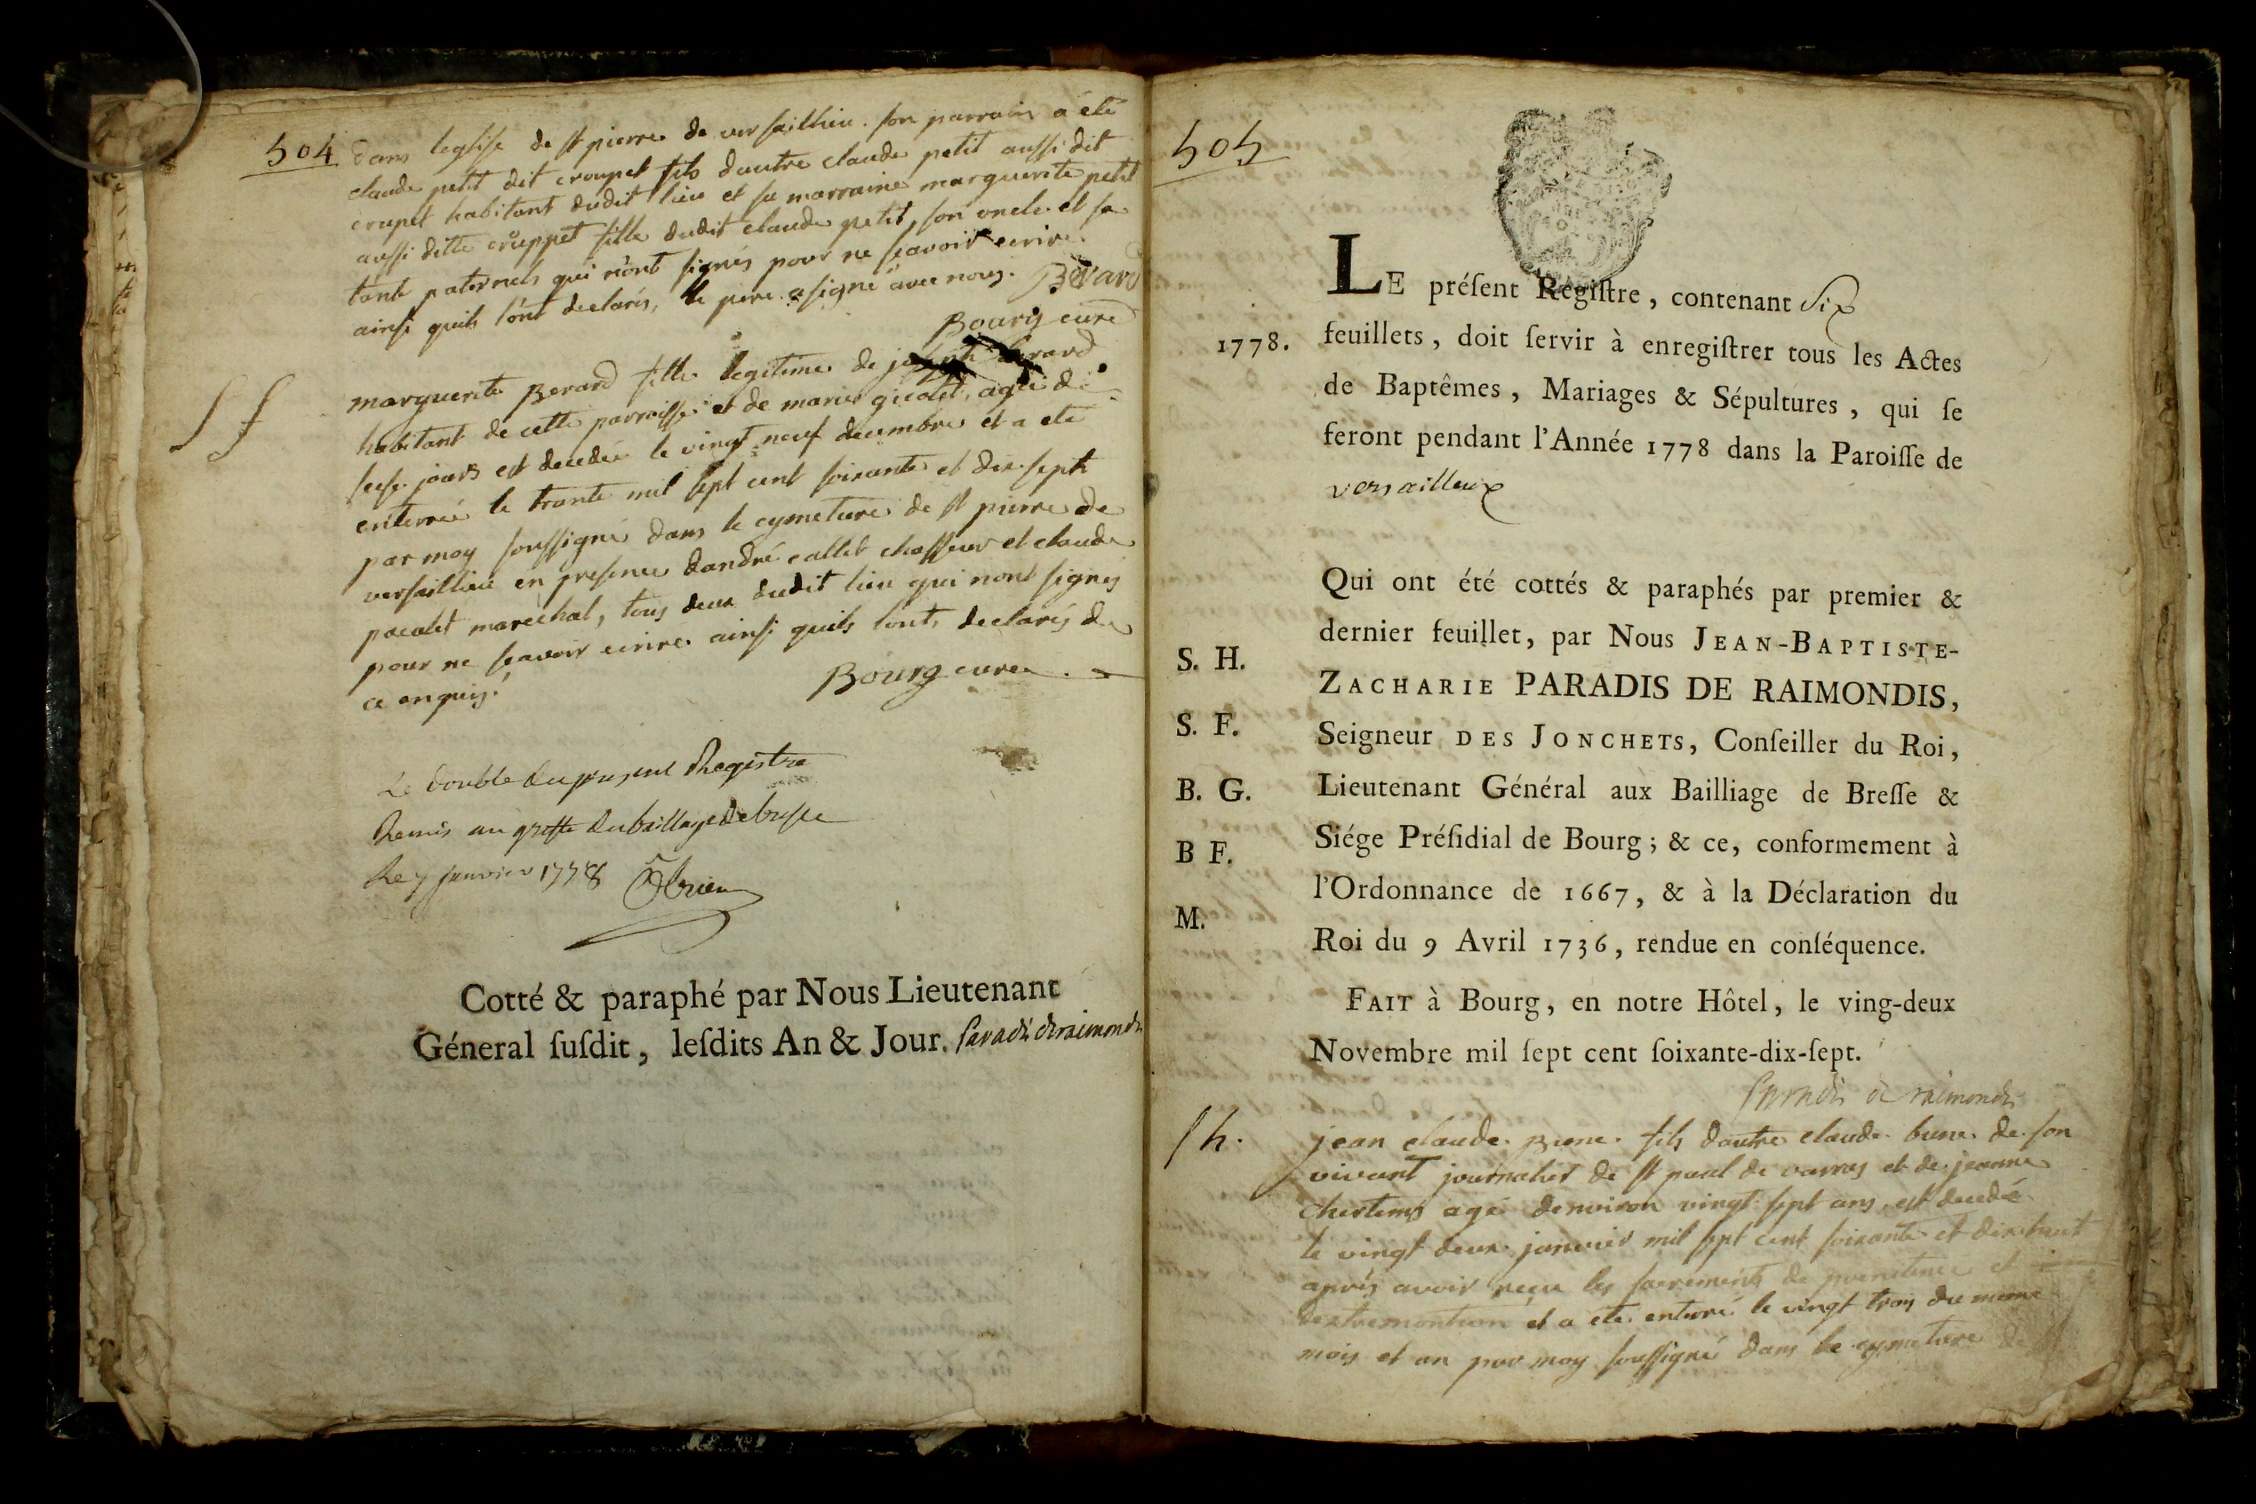 504
dans leglise de st pierre de versaillieu. son parrain a été
claude petit dit croupet fils dautre claude petit aussi dit
crupet habitant dudit lieu et sa marraine marguerite petit
aussi ditte cruppet fille dudit claude petit, son oncle et sa
tante paternels qui n'ont signés pour ne sçavoir ecrire
ainsi quils l'ont declarés, le pere a signé avec nous. Berard
Bourg curé
S f
marguerite Berard fille legitime de joseph berard
habitant de cette parroisse et de marie gicolet, agée de
sese jours est decedée le vingt neuf decembre et a eté
enterrée le trante mil sept cent soixante et dix sept
par moy soussigné dans le cymetiere de st pierre de
versaillieu en presence dandré callet chasseur et claude
pacalet marechal, tous deux dudit lieu qui nont signés
pour ne sçavoir ecrire ainsi quils lonts declarés de
ce enquis.
Bourg curé
Le double du present Registre
Remis au greffe du bailliage de bresse
Le 7 janvier 1778
Cotté & paraphé par Nous Lieutenant
Géneral ſuſdit, leſdits An & Jour. Paradis de raimondis
505
1778.
LE préſent Regiſtre, contenant Six
feuillets, doit ſervir à enregiſtrer tous les Actes
de Baptêmes, Mariages & Sépultures, qui ſe
feront pendant l'Année 1778 dans la Paroiſſe de
versailleux
Qui ont été cottés & paraphés par premier &
dernier feuillet, par Nous JEAN-BAPTISTE-
ZACHARIE PARADIS DE RAIMONDIS,
Seigneur DES JONCHETS, Conſeiller du Roi,
Lieutenant Général aux Bailliage de Breſſe &
Siége Préſidial de Bourg; & ce, conformement à
l'Ordonnance de 1667, & à la Déclaration du
Roi du 9 Avril 1736, rendue en conſéquence.
FAIT à Bourg, en notre Hôtel, le ving-deux
Novembre mil ſept cent ſoixante-dix-ſept.
S. H.
S. F.
B. G.
B F.
M.
Paradis de raimondis
S h.
jean claude Bune fils dautre claude bune de son
vivant journalier de st paul de varras et de jeanne
chertems agé denviron vingt sept ans, est decedé
le vingt deux janvier mil sept cent soixante et dix huit
après avoir reçu les sacrements de penitence et
dextremontion et a eté enterré le vingt trois du meme
mois et an par moy soussigné dans le cymetiere de